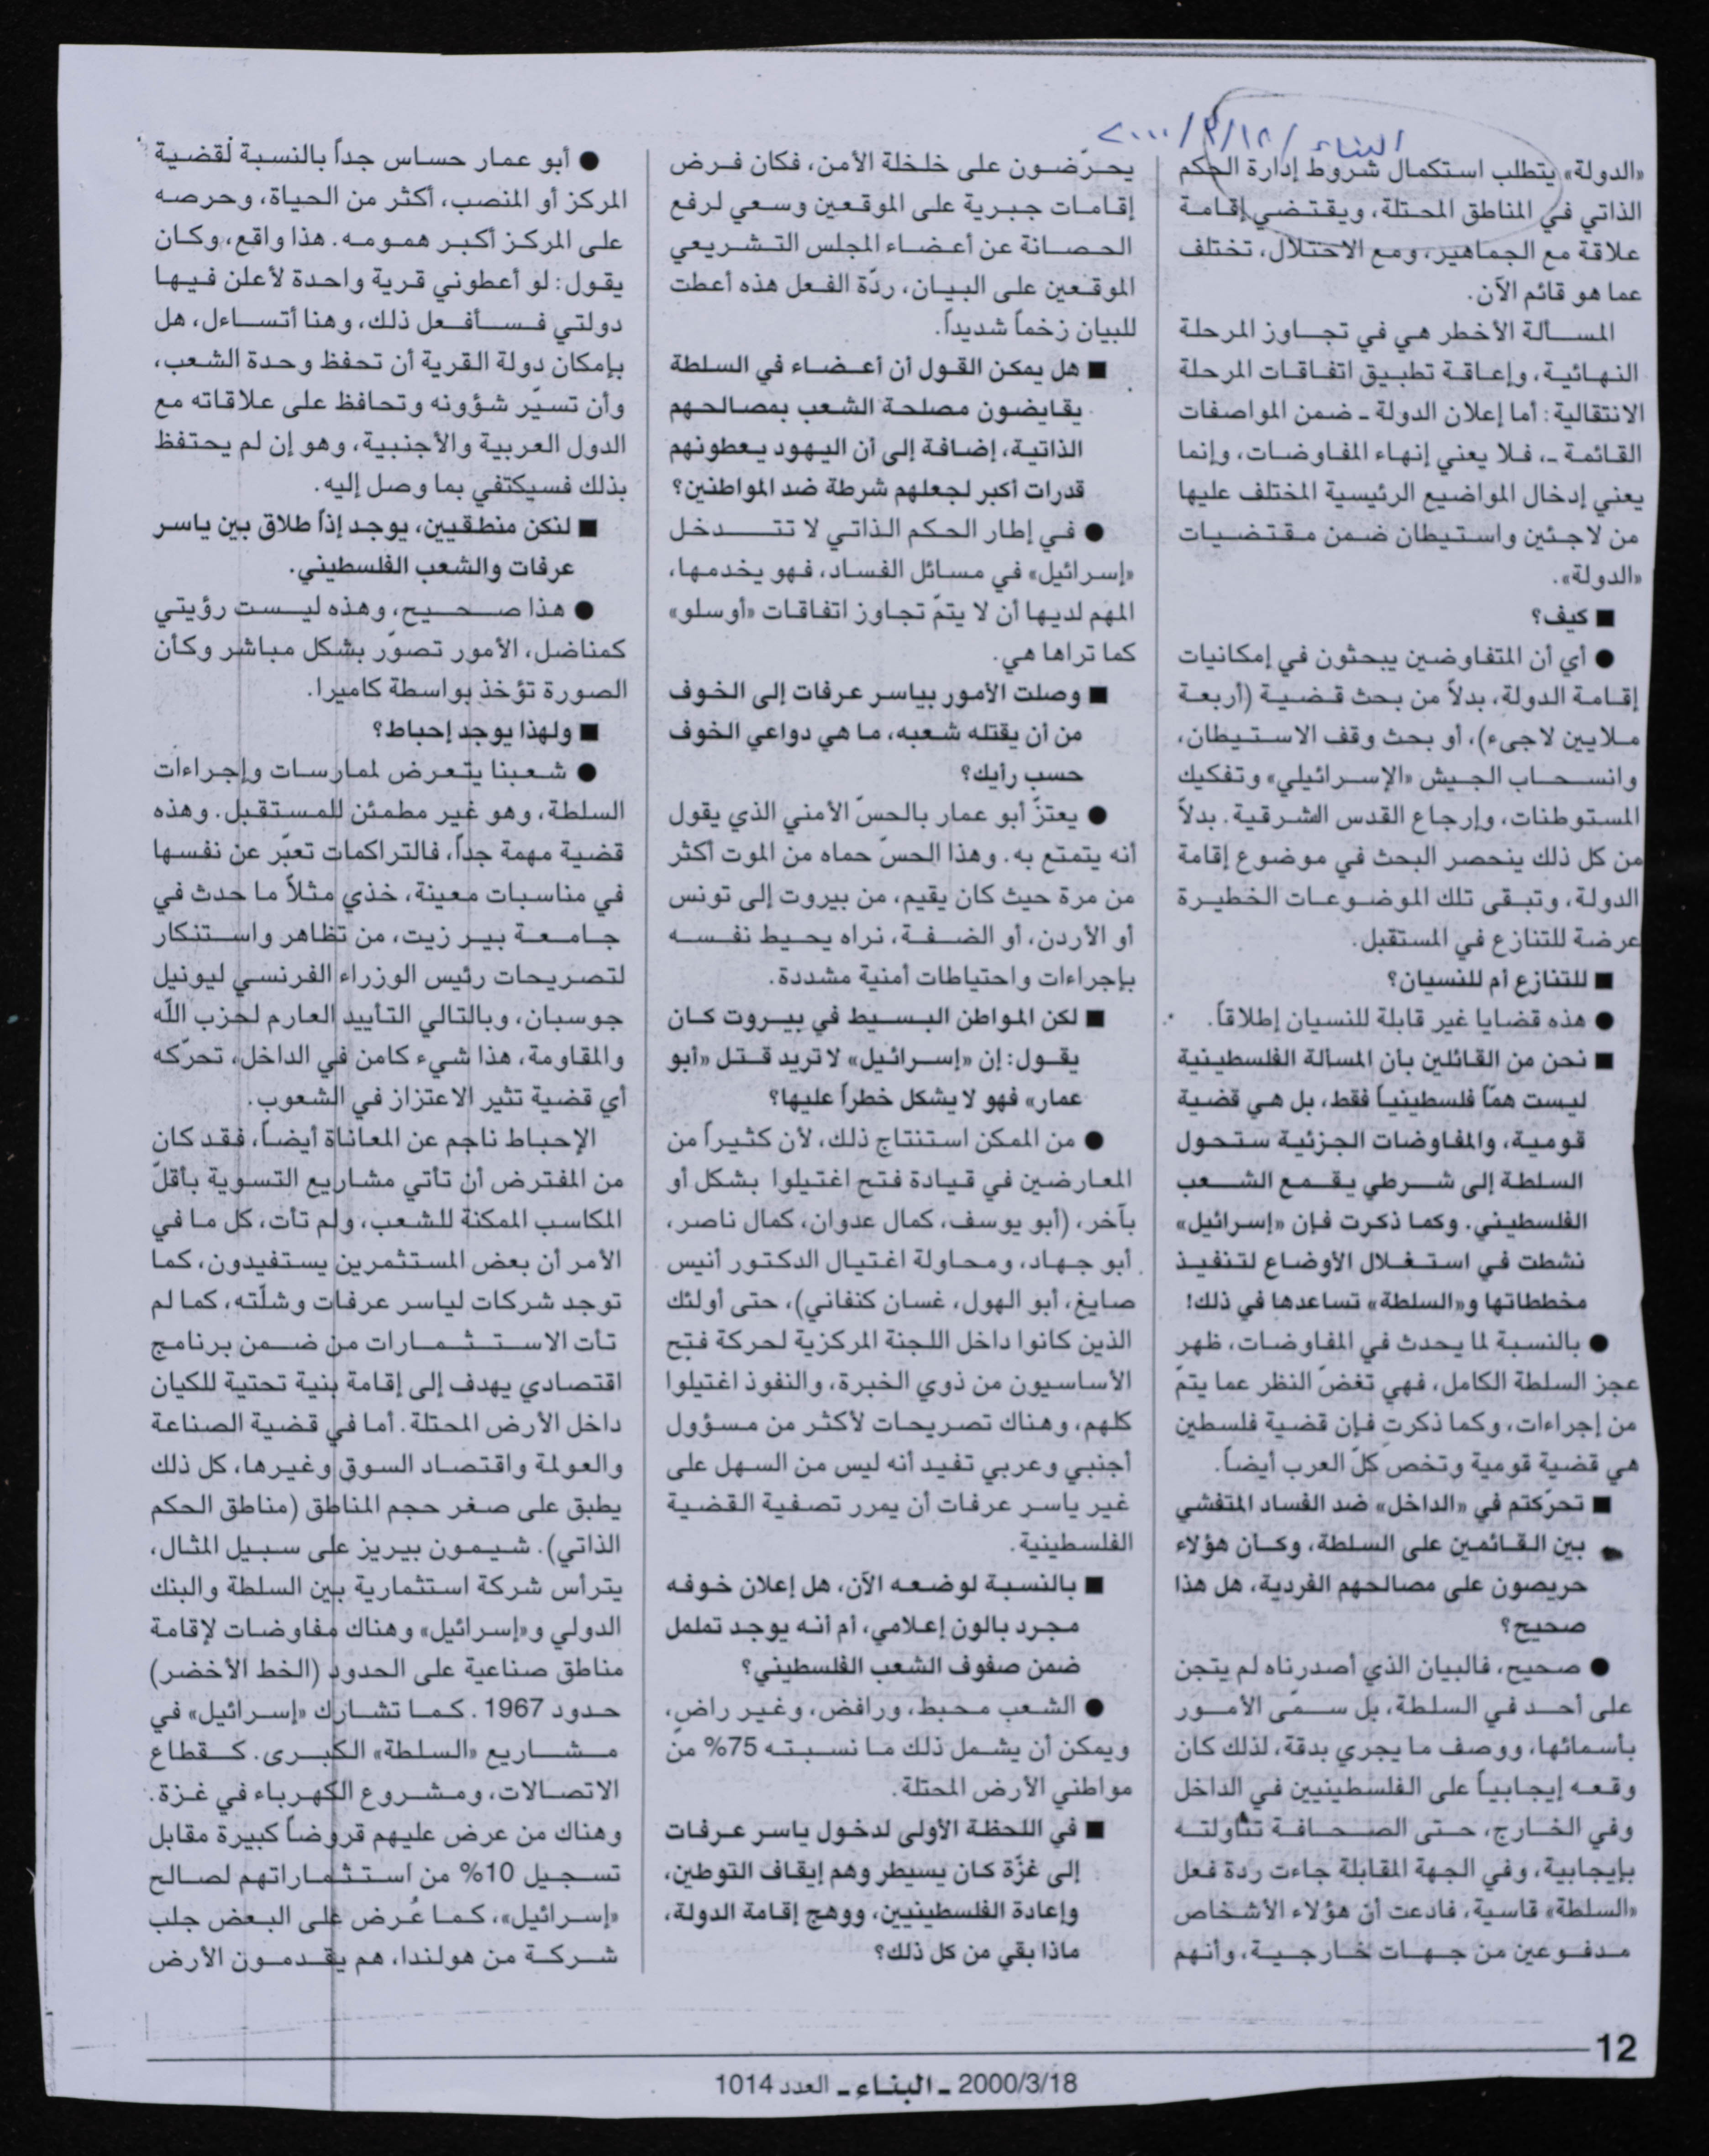 البناء / ٢٠٠٠/٣/١٨
«الدولة» يتطلب استكمال شروط إدارة الحكم
الذاتي في المناطق المحتلة، ويقتضي إقامة
علاقة مع الجماهير، ومع الاحتلال، تختلف
عما هو قائم الآن.
المسألة الأخطر هي في تجاوز المرحلة
النهائية، وإعاقة تطبيق اتفاقات المرحلة
الانتقالية: أما إعلان الدولة ـ ضمن المواصفات
القائمة ـ، فلا يعني إنهاء المفاوضات، وإنما
يعني إدخال المواضيع الرئيسية المختلف عليها
من لاجئين واستيطان ضمن مقتضيات
«الدولة».
■ كيف؟
● أي أن المتفاوضين يبحثون في إمكانيات
إقامة الدولة، بدلاً من بحث قضية (أربعة
ملايين لاجىء)، أو بحث وقف الاستيطان،
وانسحاب الجيش «الإسرائيلي» وتفكيك
المستوطنات، وإرجاع القدس الشرقية. بدلاً
من كل ذلك ينحصر البحث في موضوع إقامة
الدولة، وتبقى تلك الموضوعات الخطيرة
عرضة للتنازع في المستقبل.
■ للتنازع أم للنسيان؟
● هذه قضايا غير قابلة للنسيان إطلاقاً.
■ نحن من القائلين بأن المسألة الفلسطينية
ليست همّاً فلسطينياً فقط، بل هي قضية
قومية، والمفاوضات الجزئية ستحول
السلطة إلى شرطي يقمع الشعب
الفلسطيني. وكما ذكرت فإن «إسرائيل»
نشطت في استغلال الأوضاع لتنفيذ
مخططاتها و«السلطة» تساعدها في ذلك!
● بالنسبة لما يحدث في المفاوضات، ظهر
عجز السلطة الكامل، فهي تغضّ النظر عما يتمّ
من إجراءات، وكما ذكرت فإن قضية فلسطين
هي قضية قومية وتخص كلّ العرب أيضاً.
■ تحرّكتم في «الداخل» ضد الفساد المتفشي
بين القائمين على السلطة، وكأن هؤلاء
حريصون على مصالحهم الفردية، هل هذا
صحيح؟
● صحيح، فالبيان الذي أصدرناه لم يتجن
على أحد في السلطة، بل سمّى الأمور
بأسمائها، ووصف ما يجري بدقة، لذلك كان
وقعه إيجابياً على الفلسطينيين في الداخل
وفي الخارج، حتى الصحافة تناولته
بإيجابية، وفي الجهة المقابلة جاءت ردة فعل
«السلطة» قاسية، فادعت أن هؤلاء الأشخاص
مدفوعين من جهات خارجية، وأنهم
يحرّضون على خلخلة الأمن، فكان فرض
إقامات جبرية على الموقعين وسعي لرفع
الحصانة عن أعضاء المجلس التشريعي
الموقعين على البيان، ردّة الفعل هذه أعطت
للبيان زخماً شديداً.
■ هل يمكن القول أن أعضاء في السلطة
يقايضون مصلحة الشعب بمصالحهم
الذاتية، إضافة إلى أن اليهود يعطونهم
قدرات أكبر لجعلهم شرطة ضد المواطنين؟
● في إطار الحكم الذاتي لا تتدخل
«إسرائيل» في مسائل الفساد، فهو يخدمها،
المهم لديها أن لا يتمّ تجاوز اتفاقات «أوسلو»
كما تراها هي.
■ وصلت الأمور بياسر عرفات إلى الخوف
من أن يقتله شعبه، ما هي دواعي الخوف
حسب رأيك؟
● يعتزّ أبو عمار بالحسّ الأمني الذي يقول
أنه يتمتع به. وهذا الحسّ حماه من الموت أكثر
من مرة حيث كان يقيم، من بيروت إلى تونس
أو الأردن، أو الضفة، نراه يحيط نفسه
بإجراءات واحتياطات أمنية مشددة.
■ لكن المواطن البسيط في بيروت كان
يقول: إن «إسرائيل» لا تريد قتل «أبو
عمار» فهو لا يشكل خطراً عليها؟
● من الممكن استنتاج ذلك، لأن كثيراً من
المعارضين في قيادة فتح اغتيلوا بشكل أو
بآخر، (أبو يوسف، كمال عدوان، كمال ناصر،
أبو جهاد، ومحاولة اغتيال الدكتور أنيس
صايغ، أبو الهول، غسان كنفاني)، حتى أولئك
الذين كانوا داخل اللجنة المركزية لحركة فتح
الأساسيون من ذوي الخبرة، والنفوذ اغتيلوا
كلهم، وهناك تصريحات لأكثر من مسؤول
أجنبي وعربي تفيد أنه ليس من السهل على
غير ياسر عرفات أن يمرر تصفية القضية
الفلسطينية.
■ بالنسبة لوضعه الآن، هل إعلان خوفه
مجرد بالون إعلامي، أم أنه يوجد تململ
ضمن صفوف الشعب الفلسطيني؟
● الشعب محبط، ورافض، وغير راض،
ويمكن أن يشمل ذلك ما نسبته 75% من
مواطني الأرض المحتلة.
■ في اللحظة الأولى لدخول ياسر عرفات
إلى غزّة كان يسيطر وهم إيقاف التوطين،
وإعادة الفلسطينيين، ووهج إقامة الدولة،
ماذا بقي من كل ذلك؟
● أبو عمار حساس جداً بالنسبة لقضية
المركز أو المنصب، أكثر من الحياة، وحرصه
على المركز أكبر همومه. هذا واقع، وكان
يقول: لو أعطوني قرية واحدة لأعلن فيها
دولتي فسأفعل ذلك، وهنا أتساءل، هل
بإمكان دولة القرية أن تحفظ وحدة الشعب،
وأن تسيّر شؤونه وتحافظ على علاقاته مع
الدول العربية والأجنبية، وهو إن لم يحتفظ
بذلك فسيكتفي بما وصل إليه.
■ لنكن منطقيين، يوجد إذاً طلاق بين ياسر
عرفات والشعب الفلسطيني.
● هذا صحيح، وهذه ليست رؤيتي
كمناضل، الأمور تصوّر بشكل مباشر وكأن
الصورة تؤخذ بواسطة كاميرا.
■ ولهذا يوجد إحباط؟
● شعبنا يتعرض لممارسات وإجراءات
السلطة، وهو غير مطمئن للمستقبل. وهذه
قضية مهمة جداً، فالتراكمات تعبّر عن نفسها
في مناسبات معينة، خذي مثلاً ما حدث في
جامعة بير زيت، من تظاهر واستنكار
لتصريحات رئيس الوزراء الفرنسي ليونيل
جوسبان، وبالتالي التأييد العارم لحزب اللّه
والمقاومة، هذا شيء كامن في الداخل، تحرّكه
أي قضية تثير الاعتزاز في الشعوب.
الإحباط ناجم عن المعاناة أيضاً، فقد كان
من المفترض أن تأتي مشاريع التسوية بأقلّ
المكاسب الممكنة للشعب، ولم تأت، كل ما في
الأمر أن بعض المستثمرين يستفيدون، كما
توجد شركات لياسر عرفات وشلّته، كما لم
تأت الاستثمارات من ضمن برنامج
اقتصادي يهدف إلى إقامة بنية تحتية للكيان
داخل الأرض المحتلة. أما في قضية الصناعة
والعولمة واقتصاد السوق وغيرها، كل ذلك
يطبق على صغر حجم المناطق (مناطق الحكم
الذاتي). شيمون بيريز على سبيل المثال،
يترأس شركة استثمارية بين السلطة والبنك
الدولي و«إسرائيل» وهناك مفاوضات لإقامة
مناطق صناعية على الحدود (الخط الأخضر)
حدود 1967. كما تشارك «إسرائيل» في
مشاريع «السلطة» الكبرى. كقطاع
الاتصالات، ومشروع الكهرباء في غزة.
وهناك من عرض عليهم قروضاً كبيرة مقابل
تسجيل 10% من استثماراتهم لصالح
«إسرائيل»، كما عُرض على البعض جلب
شركة من هولندا، هم يقدمون الأرض
12
2000/3/18 ـ البناء ـ العدد 1014